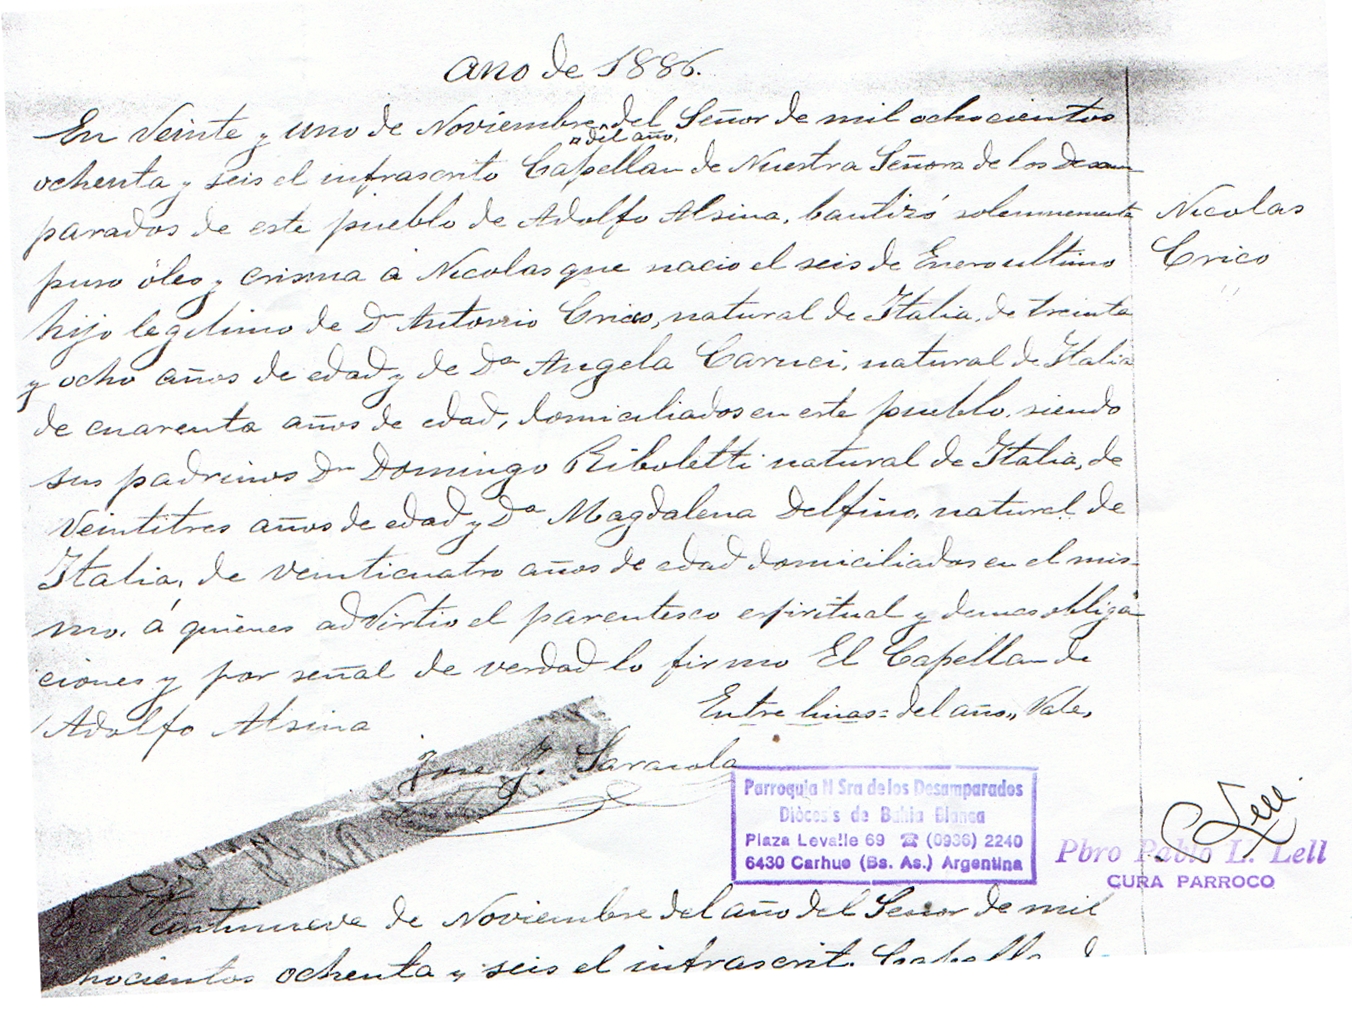 Año de 1886.
En Veinte y uno de Noviembre " del Señor de mil ochocientos
" del año,
ochenta y seis el infrascrito Capellan de Nuestra Señora de los Desam
parados de este pueblo de Adolfo Alsina, bautizó solemnemente
puso óleo y crisma á Nicolas que nacio el seis de Enero ultimo
Nicolas
Crico
hijo legitimo de Dn Antonio Crico, natural de Italia, de treinta
y ocho años de edad y de Da Angela Caruci, natural de Italia
de cuarenta años de edad, domiciliados en este pueblo, siendo
sus padrinos Dn Domingo Riboletti natural de Italia, de
veintitres años de edad y Da Magdalena Delfino, natural de
Italia, de veinticuatro años de edad domiciliados en el mis-
mo, á quienes advirtio el parentesco espiritual y demas obliga
ciones y por señal de verdad lo firmo El Capellan de
Adolfo Alsina
Entre lineas= del año,, Vale,
Jose J. Saracola
Parroquia N Sra de los Desamparados
Diòcesis de Bahia Blanca
Plaza Levalle 69 ☎ (0936) 2240
6430 Carhue (Bs. As.) Argentina
Pbro Pablo L. Lell
CURA PARROCO
Veintinueve de Noviembre del año del Señor de mil
ochocientos ochenta y seis el infrascrit. Capella de